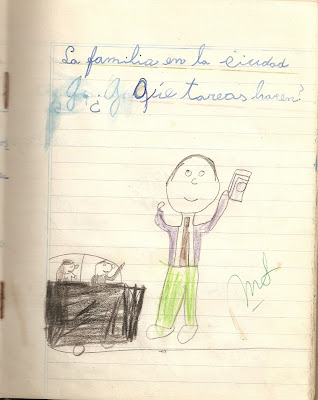 La familia en la ciudad
¿Qué tareas hacen?